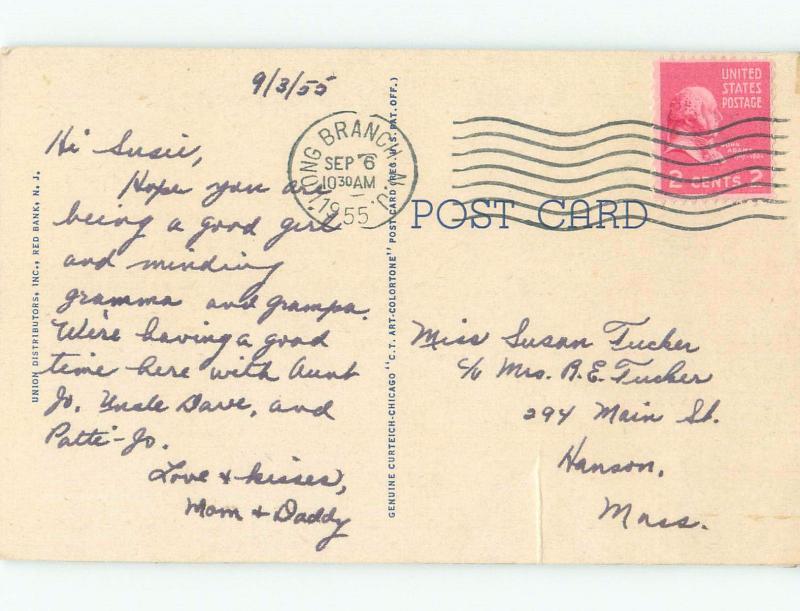 9/3/55
Hi Susie,
Hope you are
being a good girl
and minding
gramma and grampa.
We're having a good
time here with Aunt
Jo, Uncle Dave, and
Patti-Jo.
Love & kisses,
Mom & Daddy
UNION DISTRIBUTORS, INC., RED BANK, N. J.
LONG BRANCH
SEP 6
10 30 AM
1955
GENUINE CURTEICH-CHICAGO "C. T. ART-COLORTONE" POST CARD (REG. U. S. PAT. OFF.)
POST CARD
UNITED
STATES
POSTAGE
JOHN
ADAMS
2 CENTS 2
Miss Susan Tucker
c/o Mrs. R. E. Tucker
294 Main St.
Hanson,
Mass.